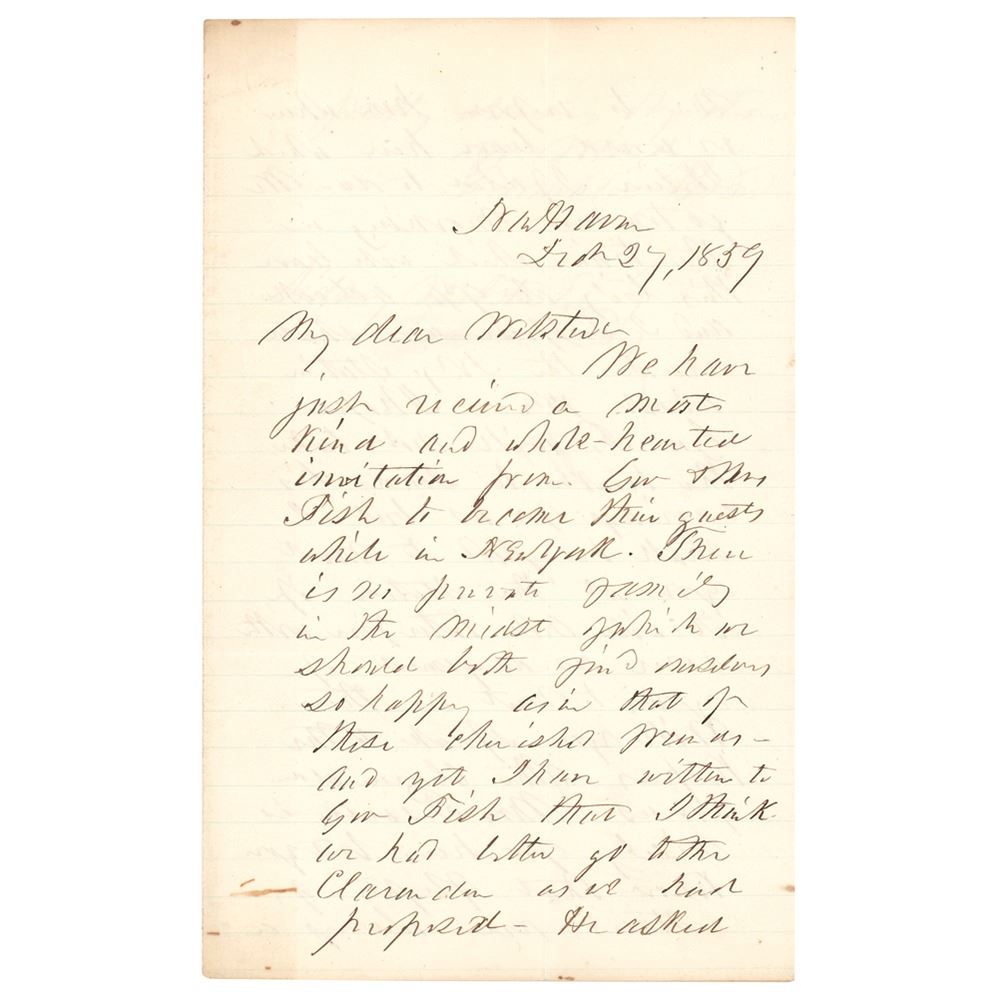 New Haven
27, 1859
My dear Webster
We have
just received a most
kind and whole-hearted
invitation from Gov & Mrs
Fish to become their guests
while in New York. There
is no private family
in the midst of which we
should both find ourselves
so happy as in that of
these cherished friends—
and yet I have written to
Gov Fish that I think
we had better go to the
Clarendon as we had
proposed— He asked